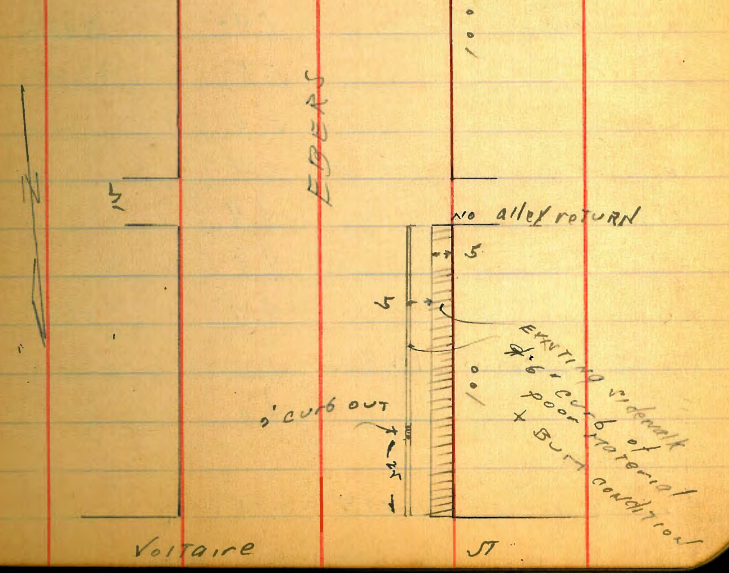 100
EBERS
15
NO alley return
5
5
Existing sidewalk
& 6" curb of
poor material
& BUM condition
100
curb out
Voltaire
ST